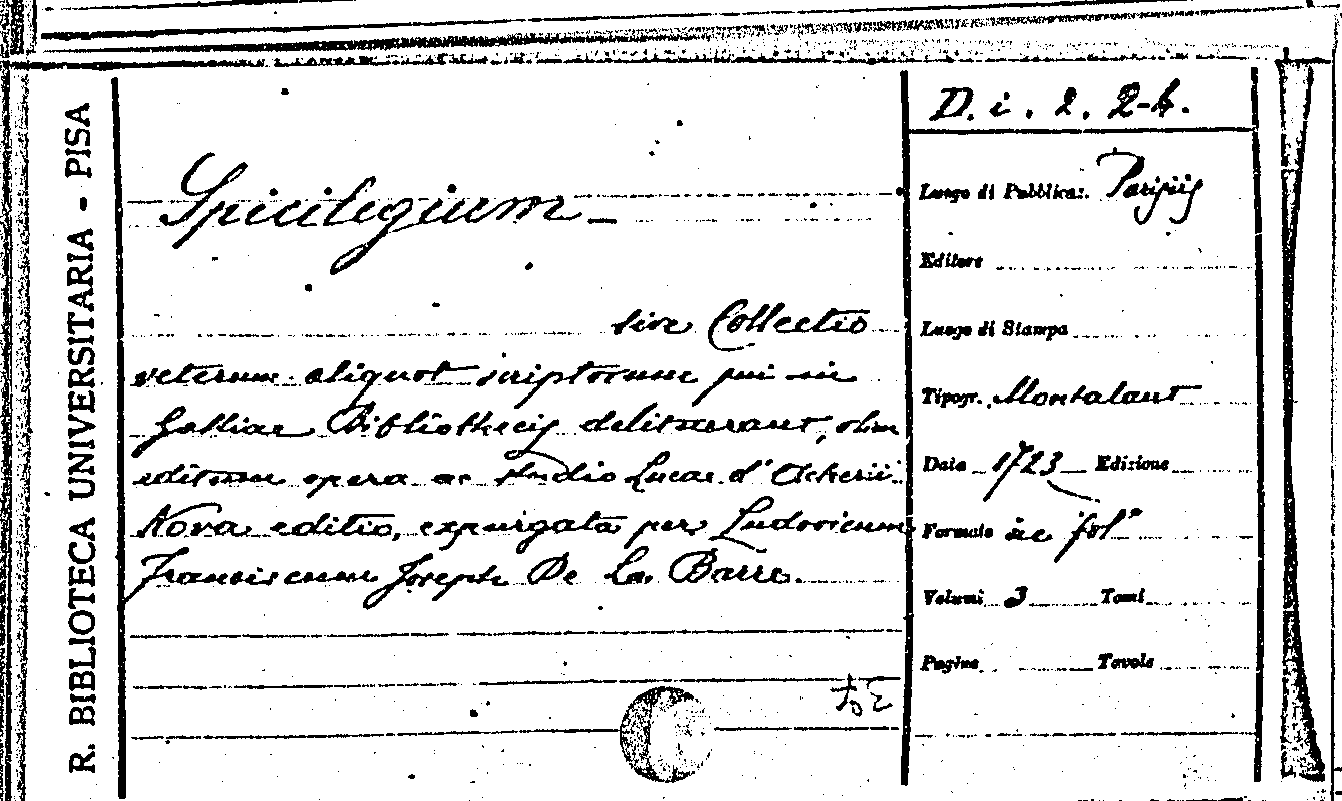 R. BIBLIOTECA UNIVERSITARIA - PISA
Spicilegium -
sive Collectio
veterum aliquot scriptorum qui in
Galliae Bibliothecis delituerant, olim
editum opera ac studio Lucae d'Acherii.
Nova editio, expurgata per Ludovicum
Franciscum Joseph De La Barre.
D. i. 2. 2-4.
Luogo di Pubblicaz. Parisiis
Editore
Luogo di Stampa
Tipogr. Montalant
Data 1723 Edizione
Formato in fol°
Volumi 3 Tomi
Pagine Tavole